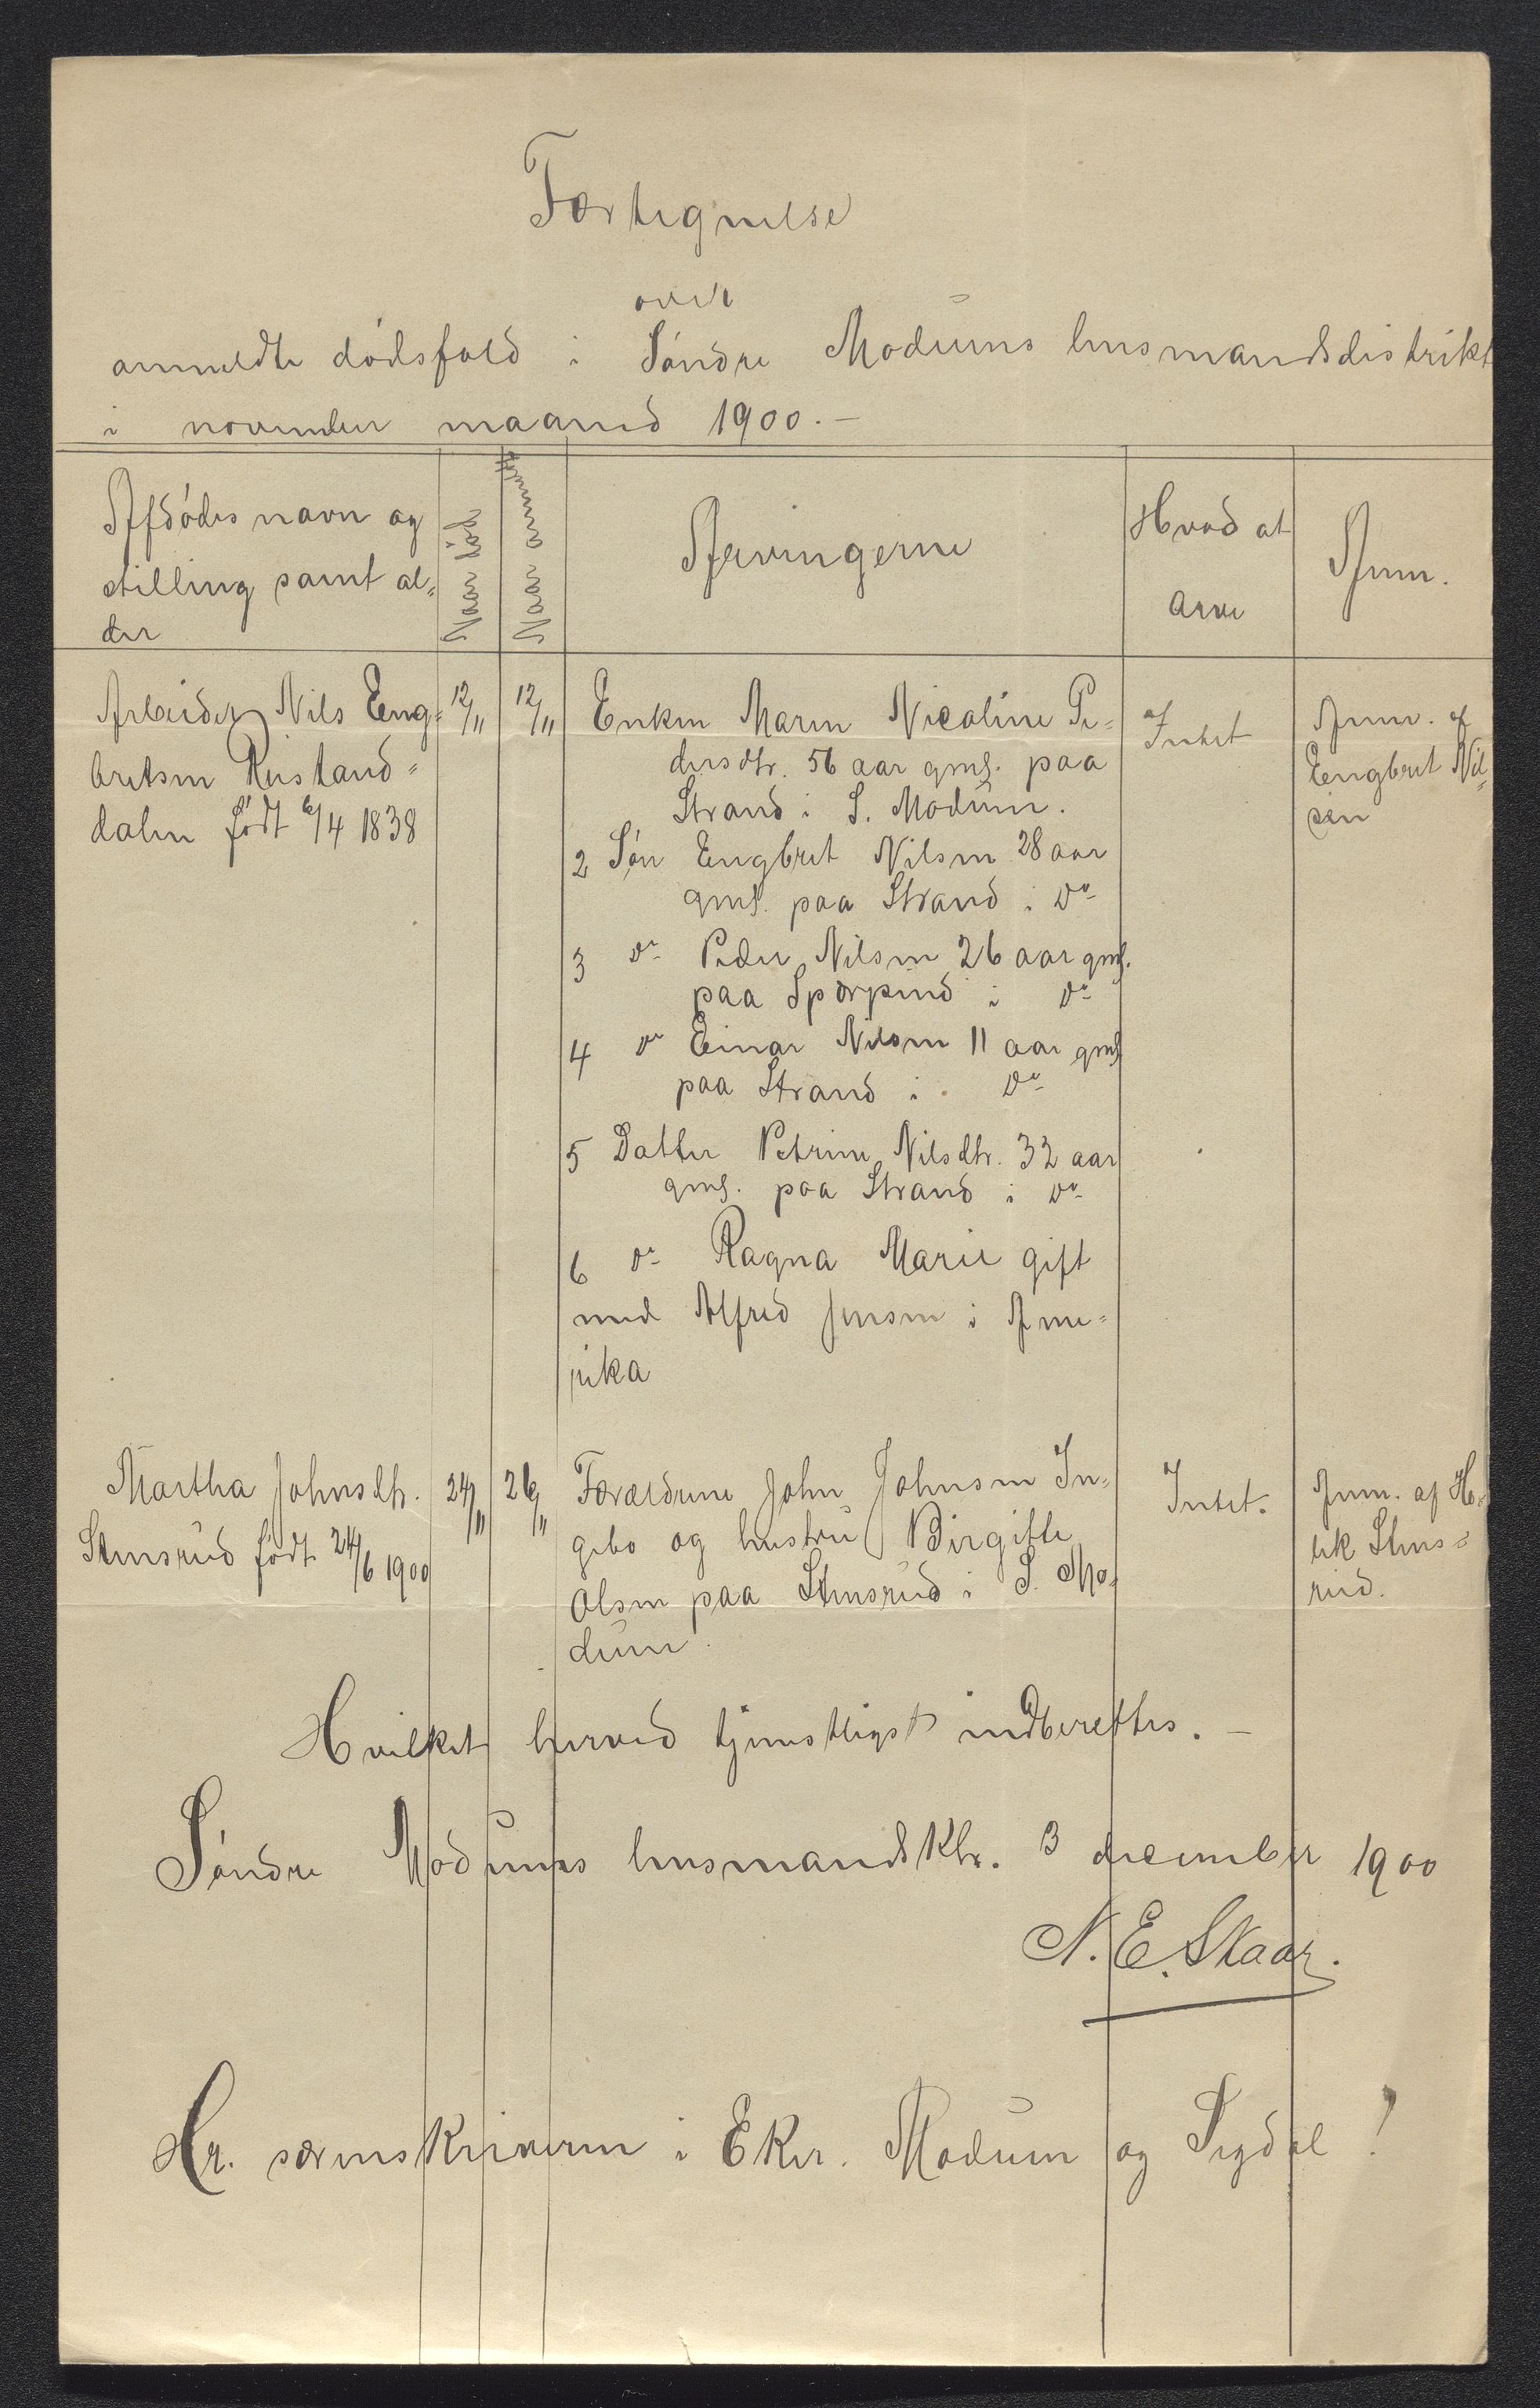 Fortegnelse
over
anmeldte dödsfald i Söndre Modums lensmandsdistrikt
i november maaned 1900.-
Afdödes navn og
stilling samt al-
der
Naar död
Naar anmeldt
Arvingerne
Hvad at
arve
Anm.
Arbeider Nils Eng-
bretsen Rustand-
dalen födt 6/4 1838
12/11
12/11
Enken Maren Nicoline Pe-
dersdtr. 56 aar gml. paa
Strand i S. Modum.
2 Sön Engbret Nilsen 28 aar
gml. paa Strand i do
3 do Peder Nilsen 26 aar gml.
paa Spærpind i do
4 do Einar Nilsen 11 aar gml
paa Strand i do
5 Datter Petrine Nilsdtr. 32 aar
gml. paa Strand i do
6 do Ragna Marie gift
med Alfred Jensen i Ame-
rika
Intet
Anm. af
Engbret Nil-
sen
Martha Johnsdtr.
Stensrud födt 24/6 1900
24/11
26/11
Forældrene John Johnsen In-
gebo og hustru Birgitte
Olsen paa Stensrud i S. Mo-
dum.
Intet.
Anm. af H.
eik Stens-
rud.
Hvilket herved tjenstligst indberettes. -
Söndre Modums lensmandsktr. 3 december 1900
N. E. Skaar.
Hr. sorenskriveren i Eker. Modum og Sigdal!